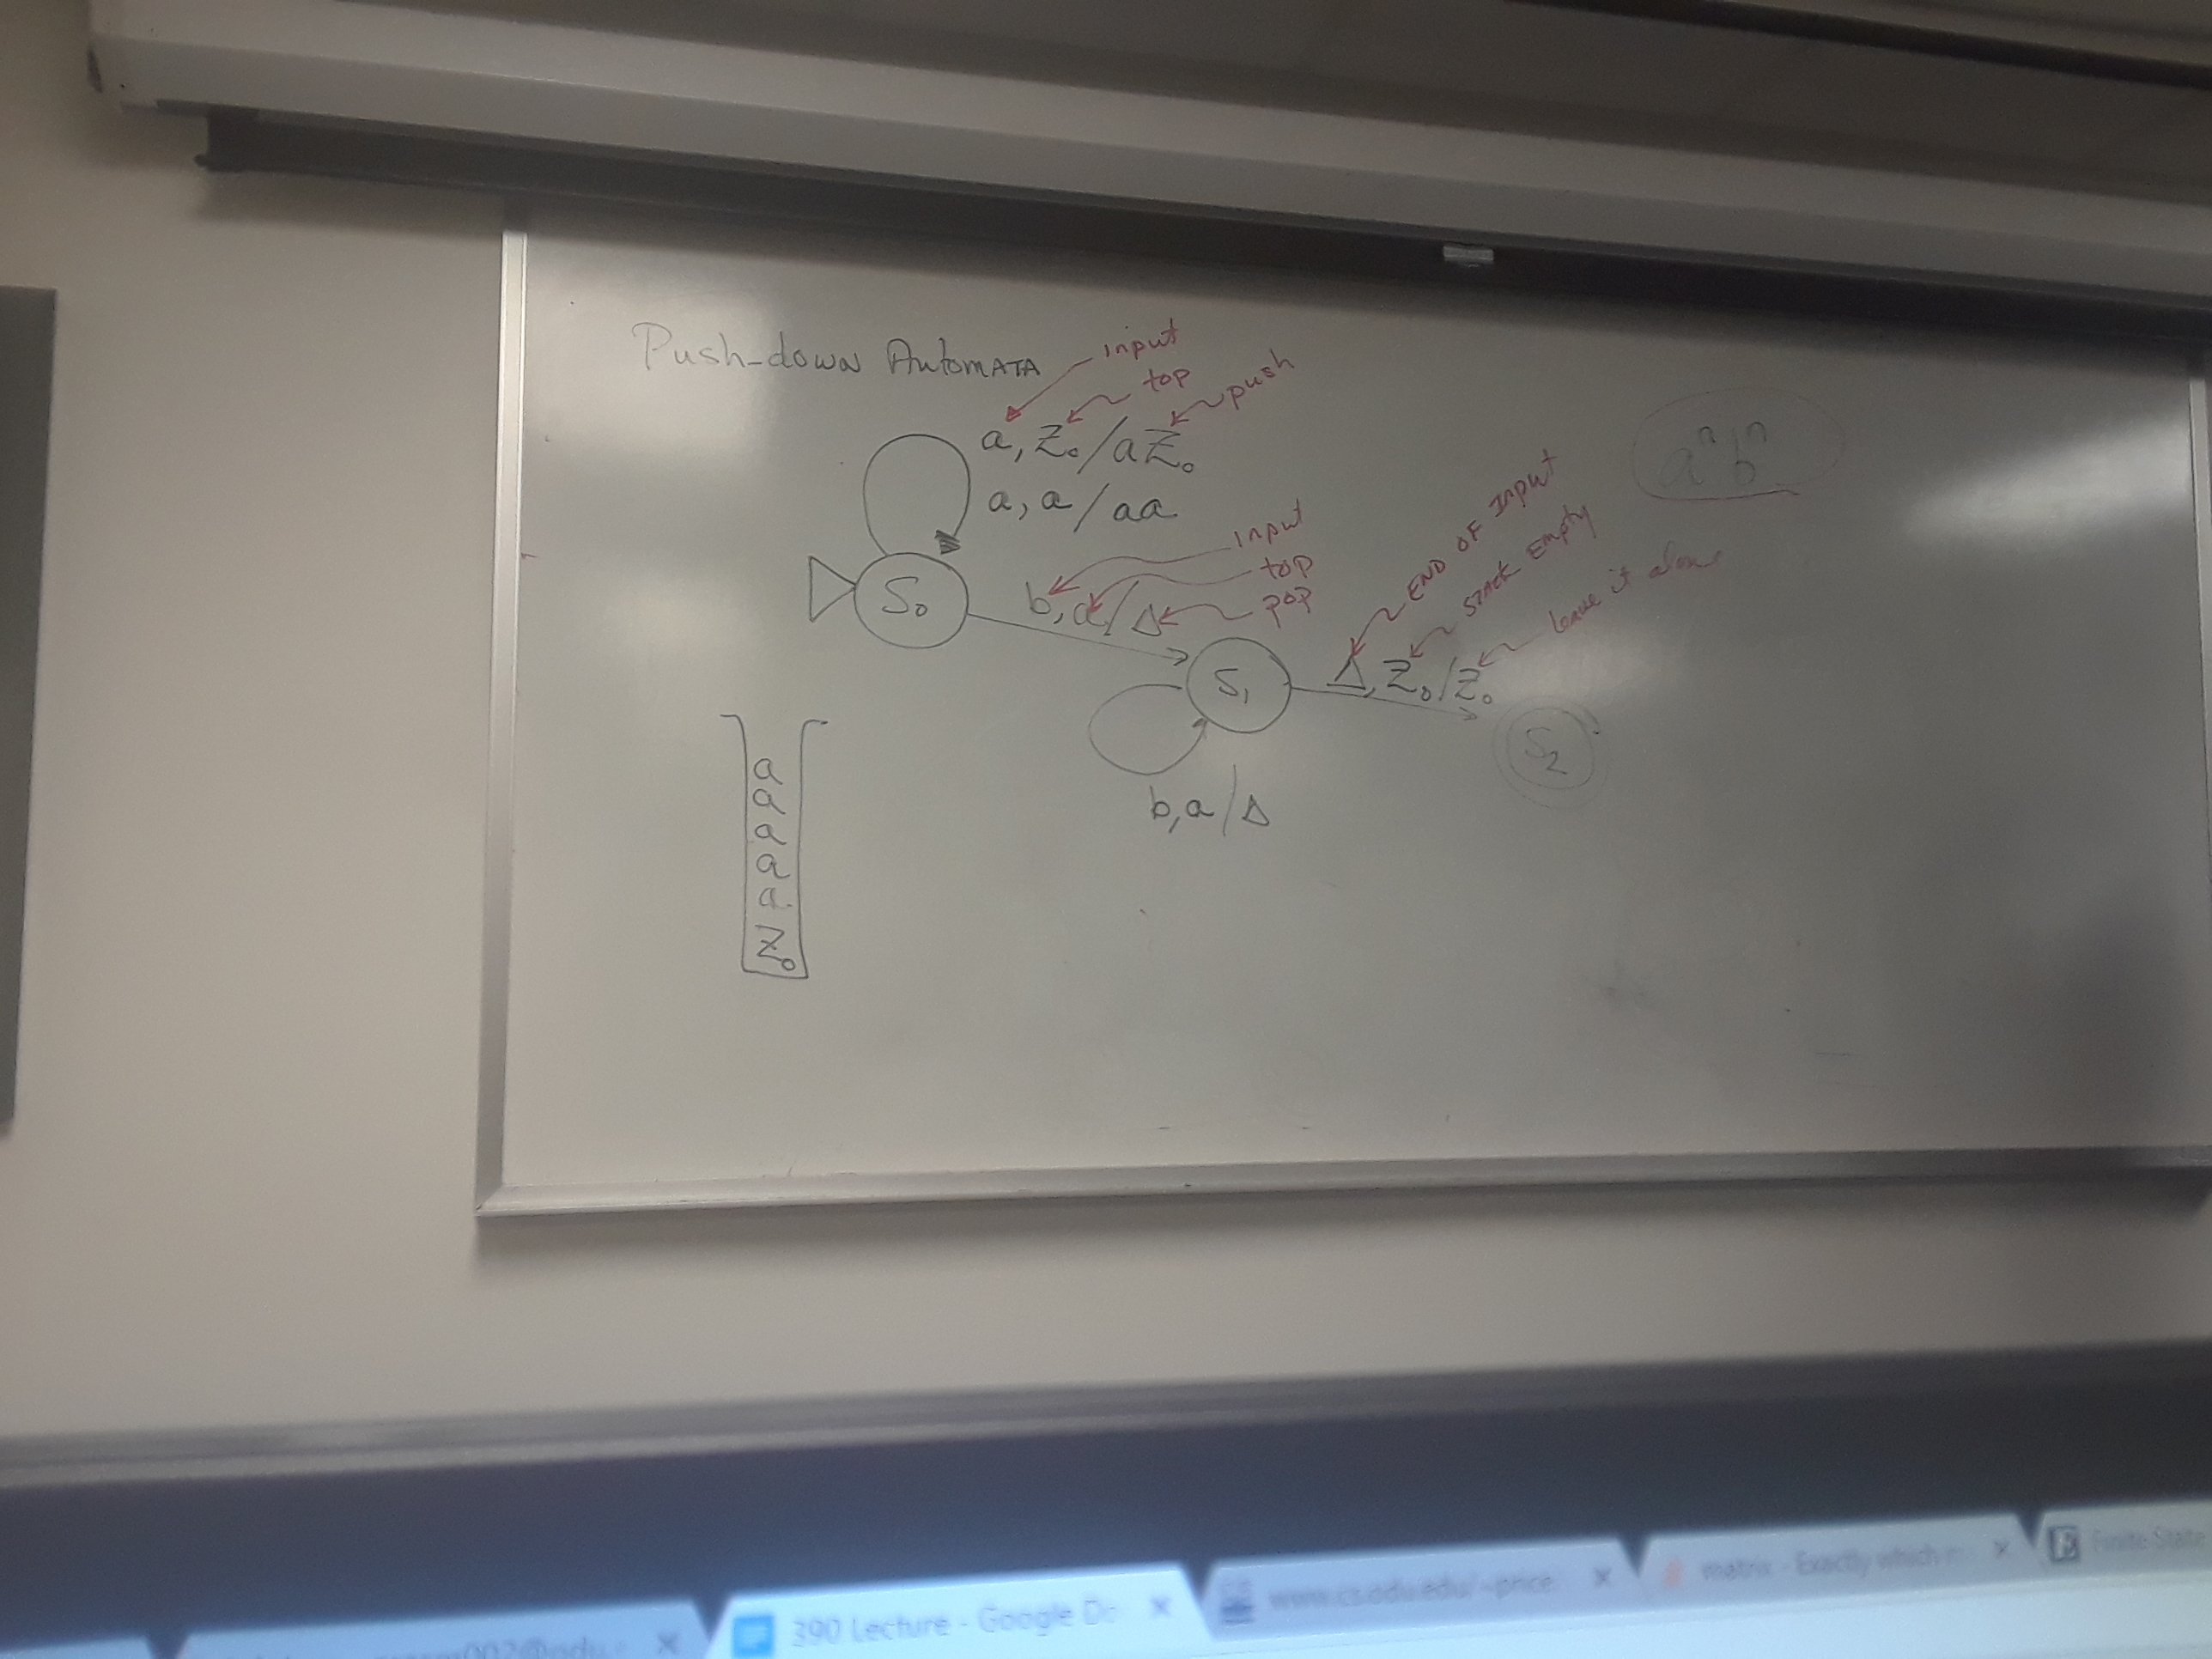 Push-down AutomATA
input
top
push
a, Z₀/aZ₀
a, a/aa
aⁿbⁿ
S₀
b, a/Δ
input
top
pop
S₁
Δ, Z₀/Z₀
END OF Input
STACK Empty
leave it alone
S₂
b, a/Δ
a
a
a
a
a
Z₀
390 Lecture - Google Do
www.cs.odu.edu/~price
matrix - Exactly which
Finite State